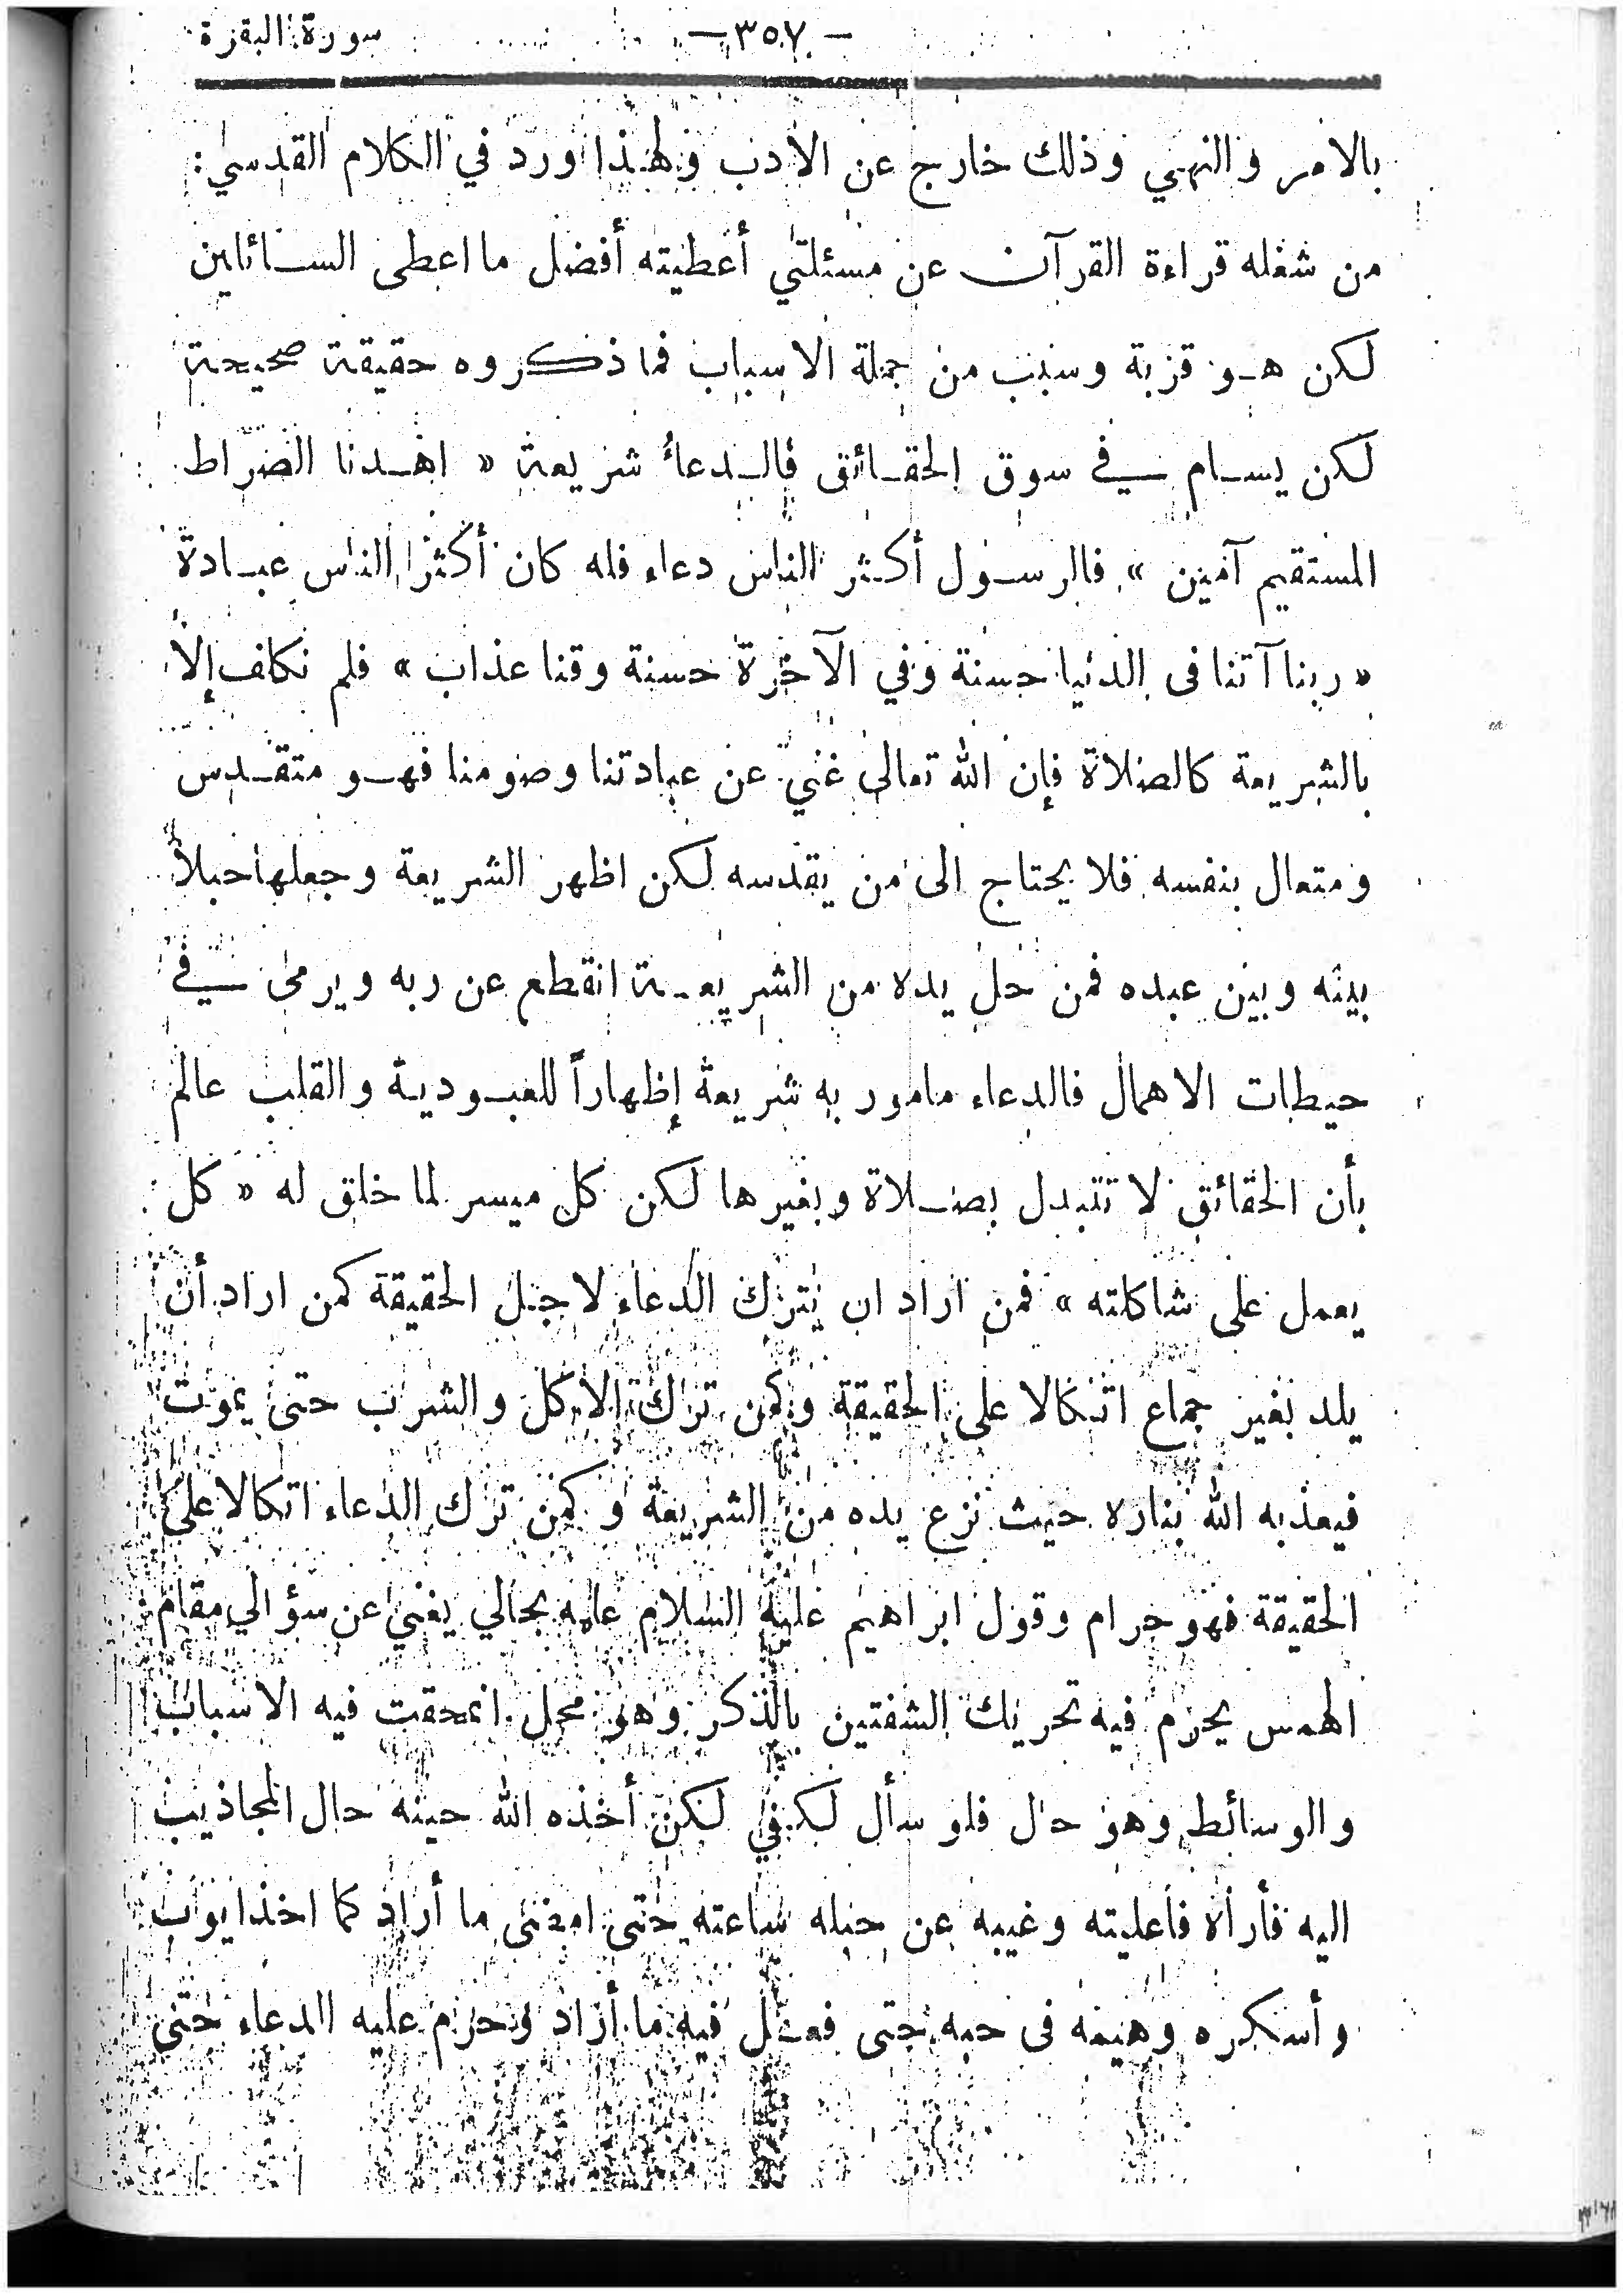 سورة البقرة - ٣٥٧ -
بالامر والنهي وذلك خارج عن الأدب ولهذا ورد في الكلام القدسي :
من شغله قراءة القرآن عن مسئلتي أعطيته أفضل ما اعطى السائلين
لكن هو قربة وسبب من جملة الاسباب فما ذكروه حقيقة صحيحة
لكن يسام في سوق الحقائق فالدعاء شريعة « اهدنا الصراط
المستقيم آمين » فالرسول أكثر الناس دعاء فله كان أكثر الناس عبادة
« ربنا آتنا فى الدنيا حسنة وفي الآخرة حسنة وقنا عذاب » فلم نكلف إلا
بالشريعة كالصلاة فإن الله تعالى غنيّ عن عبادتنا وصومنا فهو متقدس
ومتعال بنفسه فلا يحتاج الى من يقدسه لكن اظهر الشريعة وجعلها حبلاً
بينه وبين عبده فمن حل يده من الشريعة انقطع عن ربه ويرمى في
حيطات الاهمال فالدعاء مامور به شريعة إظهاراً للعبودية والقلب عالم
بأن الحقائق لا تتبدل بصلاة وبغيرها لكن كل ميسر لما خلق له « كل
يعمل على شاكلته » فمن اراد ان يترك الدعاء لاجل الحقيقة كمن اراد أن
يلد بغير جماع اتكالا على الحقيقة وكمن ترك الاكل والشرب حتى يموت
فيعذبه الله بناره حيث نزع يده من الشريعة وكمن ترك الدعاء اتكالا على
الحقيقة فهو حرام وقول ابراهيم عليه السلام علمه بحالي يغني عن سؤالي مقام
الهمس يحرم فيه تحريك الشفتين بالذكر وهو محل انمحقت فيه الاسباب
والوسائط وهو حال فلو سأل لكفي لكن أخذه الله حينه حال المجاذيب
اليه فأراه فاعليته وغيبه عن حبله ساعته حتى امضى ما أراد كما اخذ ايوب
وأسكره وهيمه فى حبه حتى فعل فيه ما أراد وحرم عليه الدعاء حتى